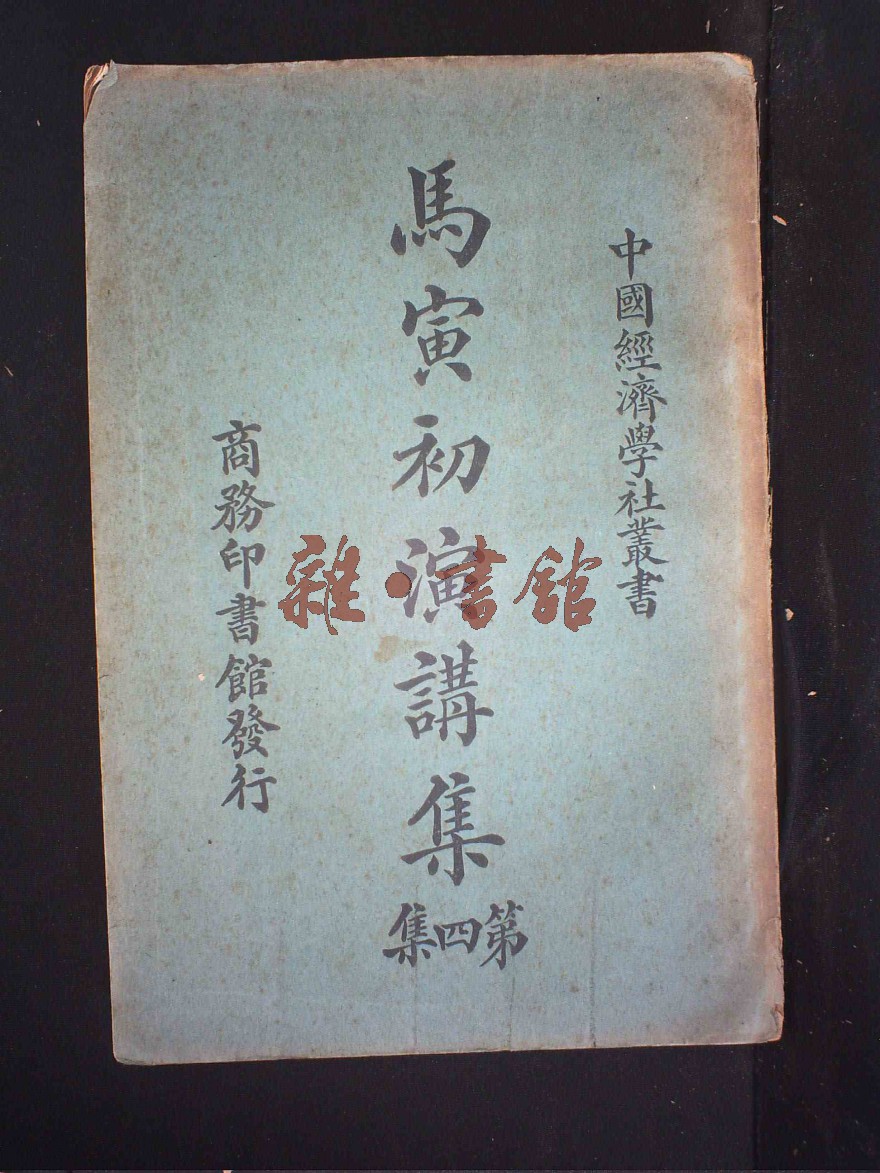 中國經濟學社叢書
馬寅初演講集
第四集
商務印書館發行
雜·書館